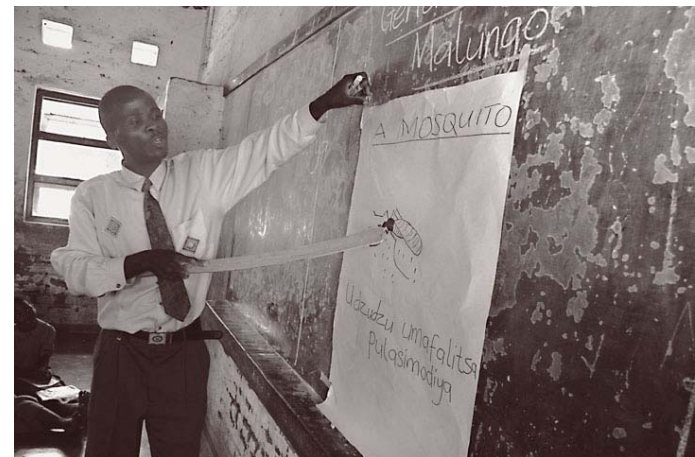 Malungo
A MOSQUITO
Udzudzu umafalitsa
pulasimodiya